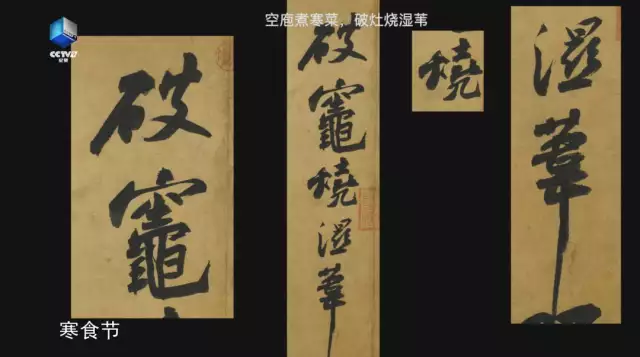 CCTV9
纪录
空庖煮寒菜，破灶烧湿苇
破竈
破竈燒濕葦
燒
濕葦
寒食节